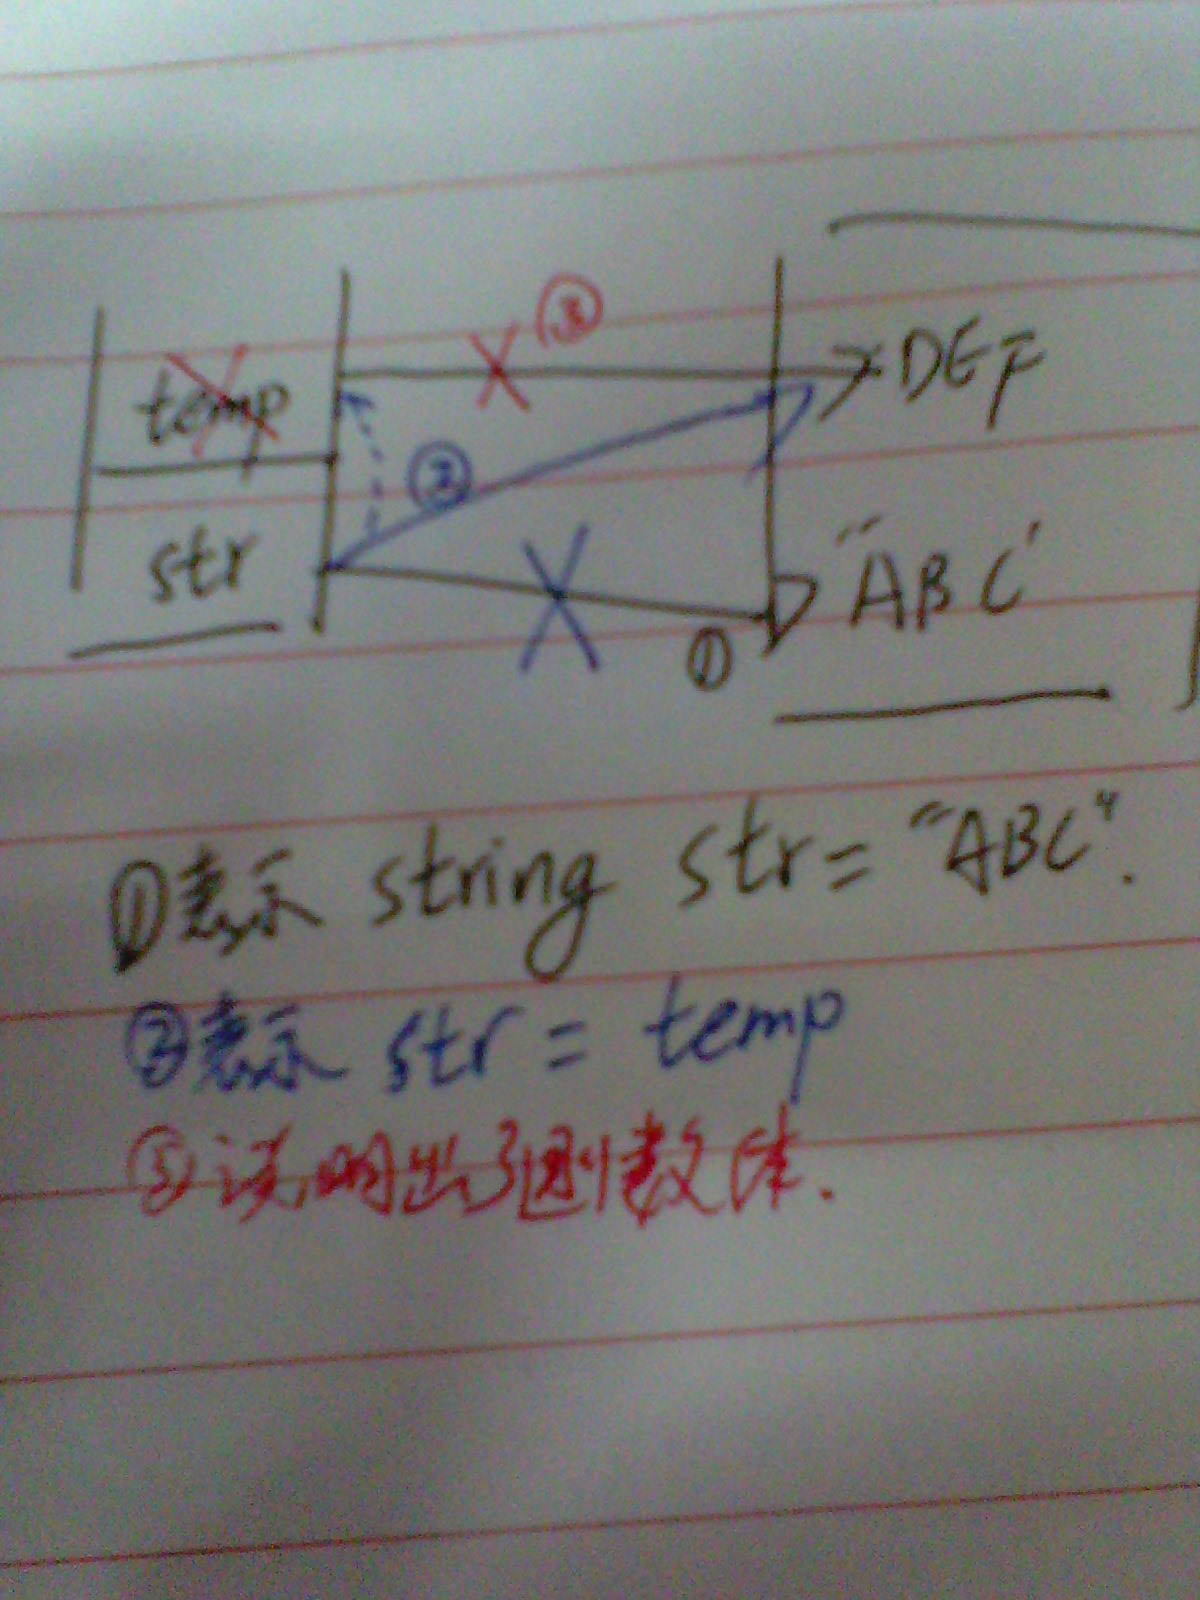 ③
temp
DEF
②
str
"ABC'
①
①表示 string str = "ABC".
②表示 str = temp
③说明出了函数体.